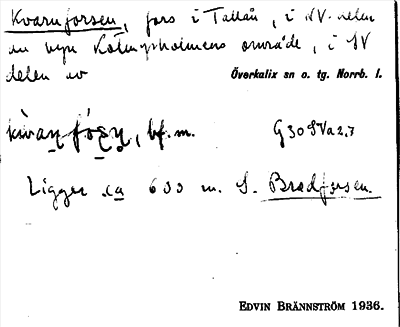 Kvarnforsen, fors i Tallån, i NV. delen
av byn område, i SV
delen av Överkalix sn o. tg. Norrb. l.
bf. m. G30SVa2,3
Ligger ca 600 m. S. Bredforsen.
EDVIN BRÄNNSTRÖM 1936.